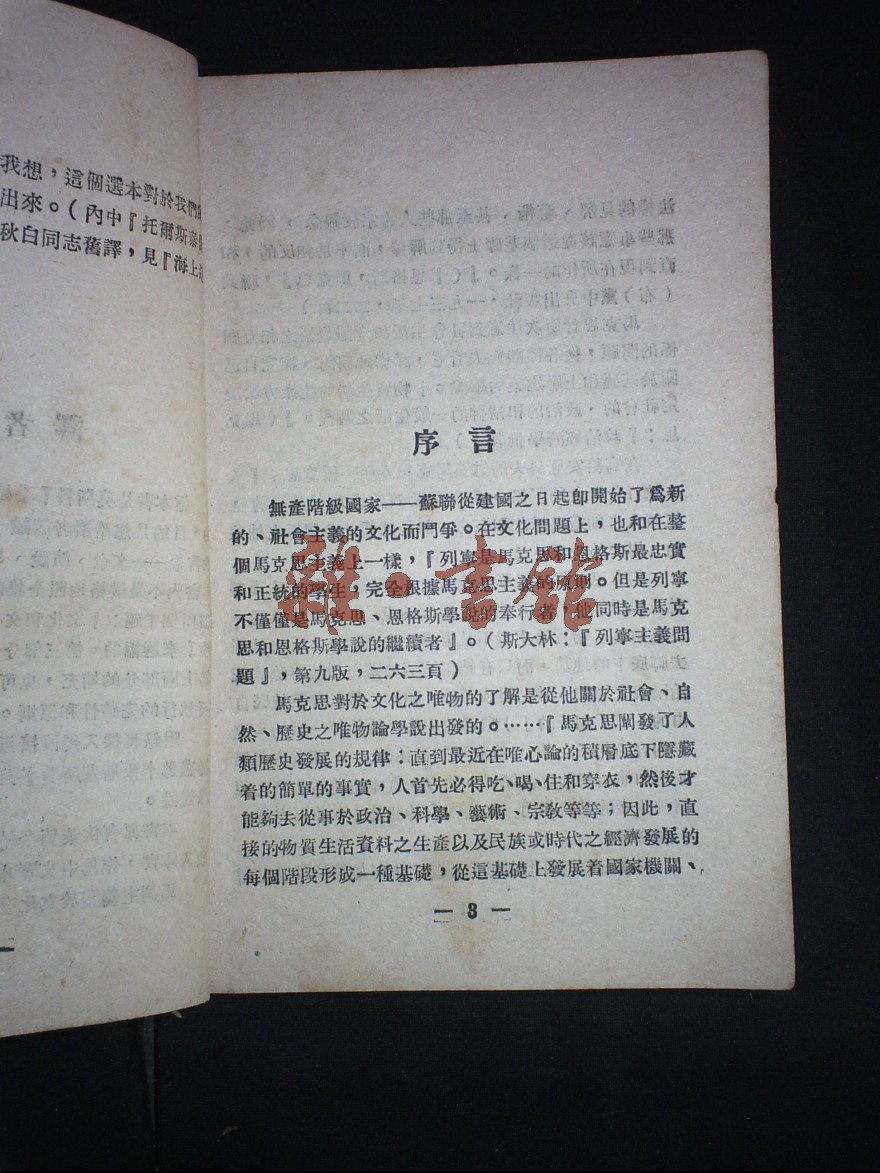 我想，這個選本對於我們
出來。（內中『托爾斯泰
秋白同志舊譯，見『海上
序言
無產階級國家——蘇聯從建國之日起卽開始了爲新
的、社會主義的文化而鬥爭。在文化問題上，也和在整
個馬克思主義上一樣，『列寧是馬克思和恩格斯最忠實
和正統的學生，完全根據馬克思主義的原則。但是列寧
不僅僅是馬克思、恩格斯學說的奉行者，他同時是馬克
思和恩格斯學說的繼續者』。（斯大林：『列寧主義問
題』，第九版，二六三頁）
馬克思對於文化之唯物的了解是從他關於社會、自
然、歷史之唯物論學說出發的。……『馬克思闡發了人
類歷史發展的規律：直到最近在唯心論的積層底下隱藏
着的簡單的事實，人首先必得吃、喝、住和穿衣，然後才
能夠去從事於政治、科學、藝術、宗敎等等；因此，直
接的物質生活資料之生產以及民族或時代之經濟發展的
每個階段形成一種基礎，從這基礎上發展着國家機關、
— 3 —
雜·書館